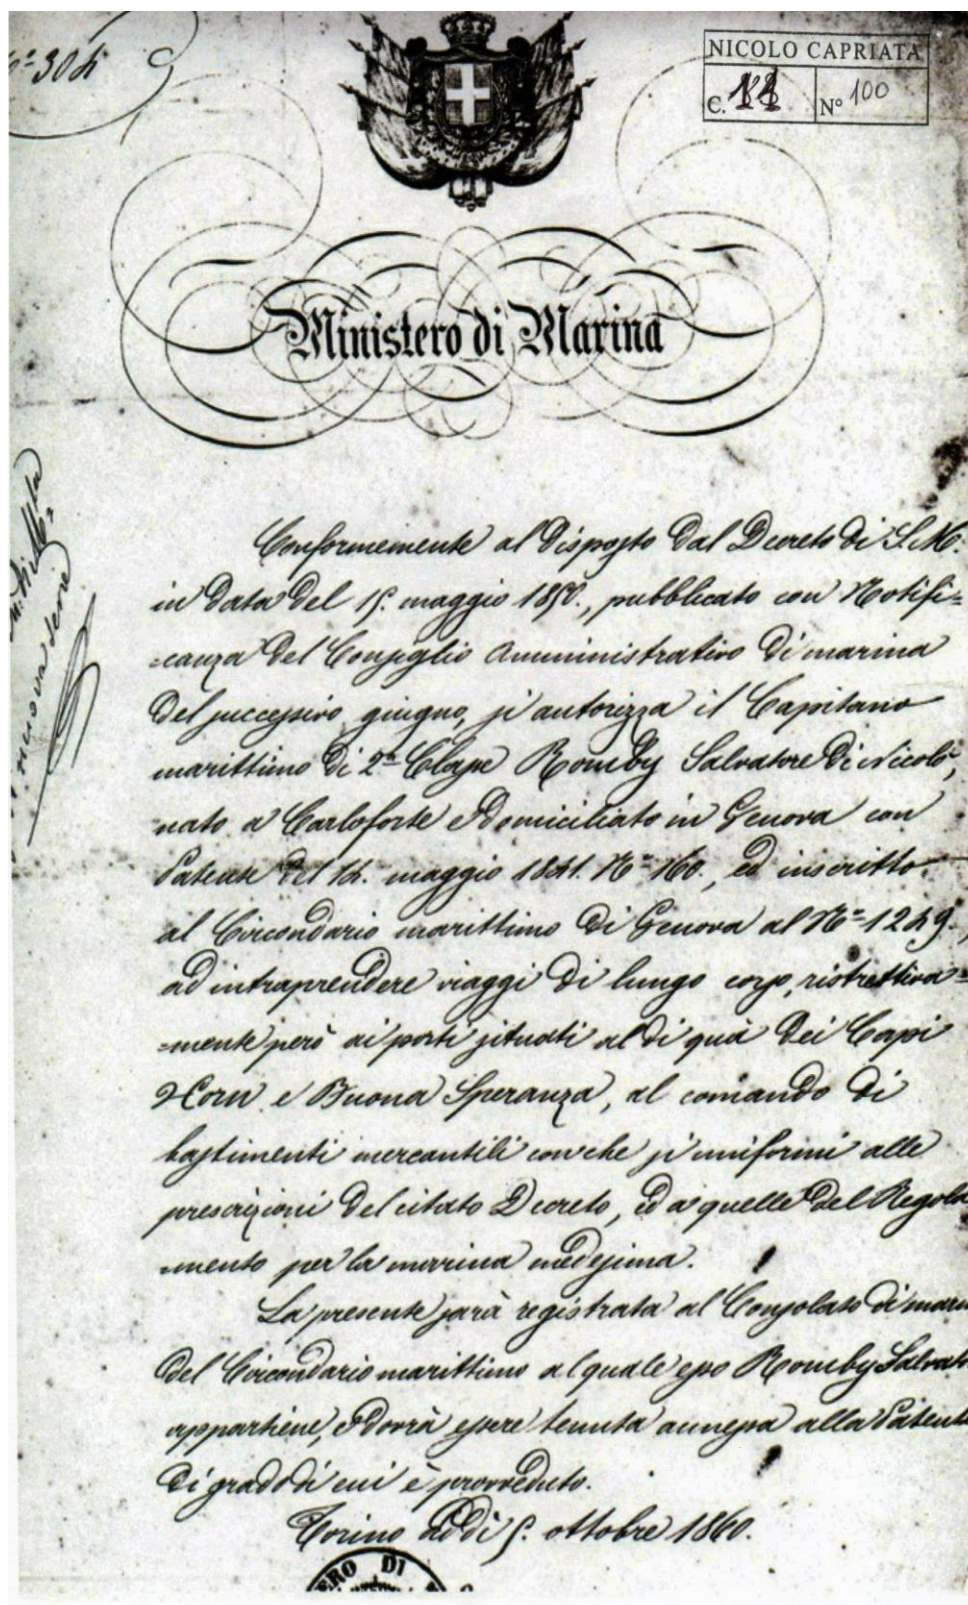 NICOLO CAPRIATA
C. N° 100
Ministero di Marina
Conformemente al disposto dal Decreto di S. M.
in data del 15. maggio 1850., pubblicato con Notifi=
=canza del Consiglio Amministrativo di marina
del successivo giugno, si autorizza il Capitano
marittimo di 2ª Classe Romby Salvatore di Nicolò,
nato a Carloforte e domiciliato in Genova con
Patente del 14. maggio 1841. N° 160., ed inscritto
al Circondario marittimo di Genova al N° 1249.,
ad intraprendere viaggi di lungo corso, ristrettiva=
=mente però ai porti situati al di quà dei Capi
Horn e Buona Speranza, al comando di
bastimenti mercantili con che si uniformi alle
prescrizioni del citato Decreto, ed a quelle del Regola
=mento per la marina medesima.
La presente sarà registrata al Consolato di mari
del Circondario marittimo al quale esso Romby Salvato
appartiene, e dovrà essere tenuta annessa alla Patente
di grado di cui è provveduto.
Torino addì 5. ottobre 1860.
ERO DI